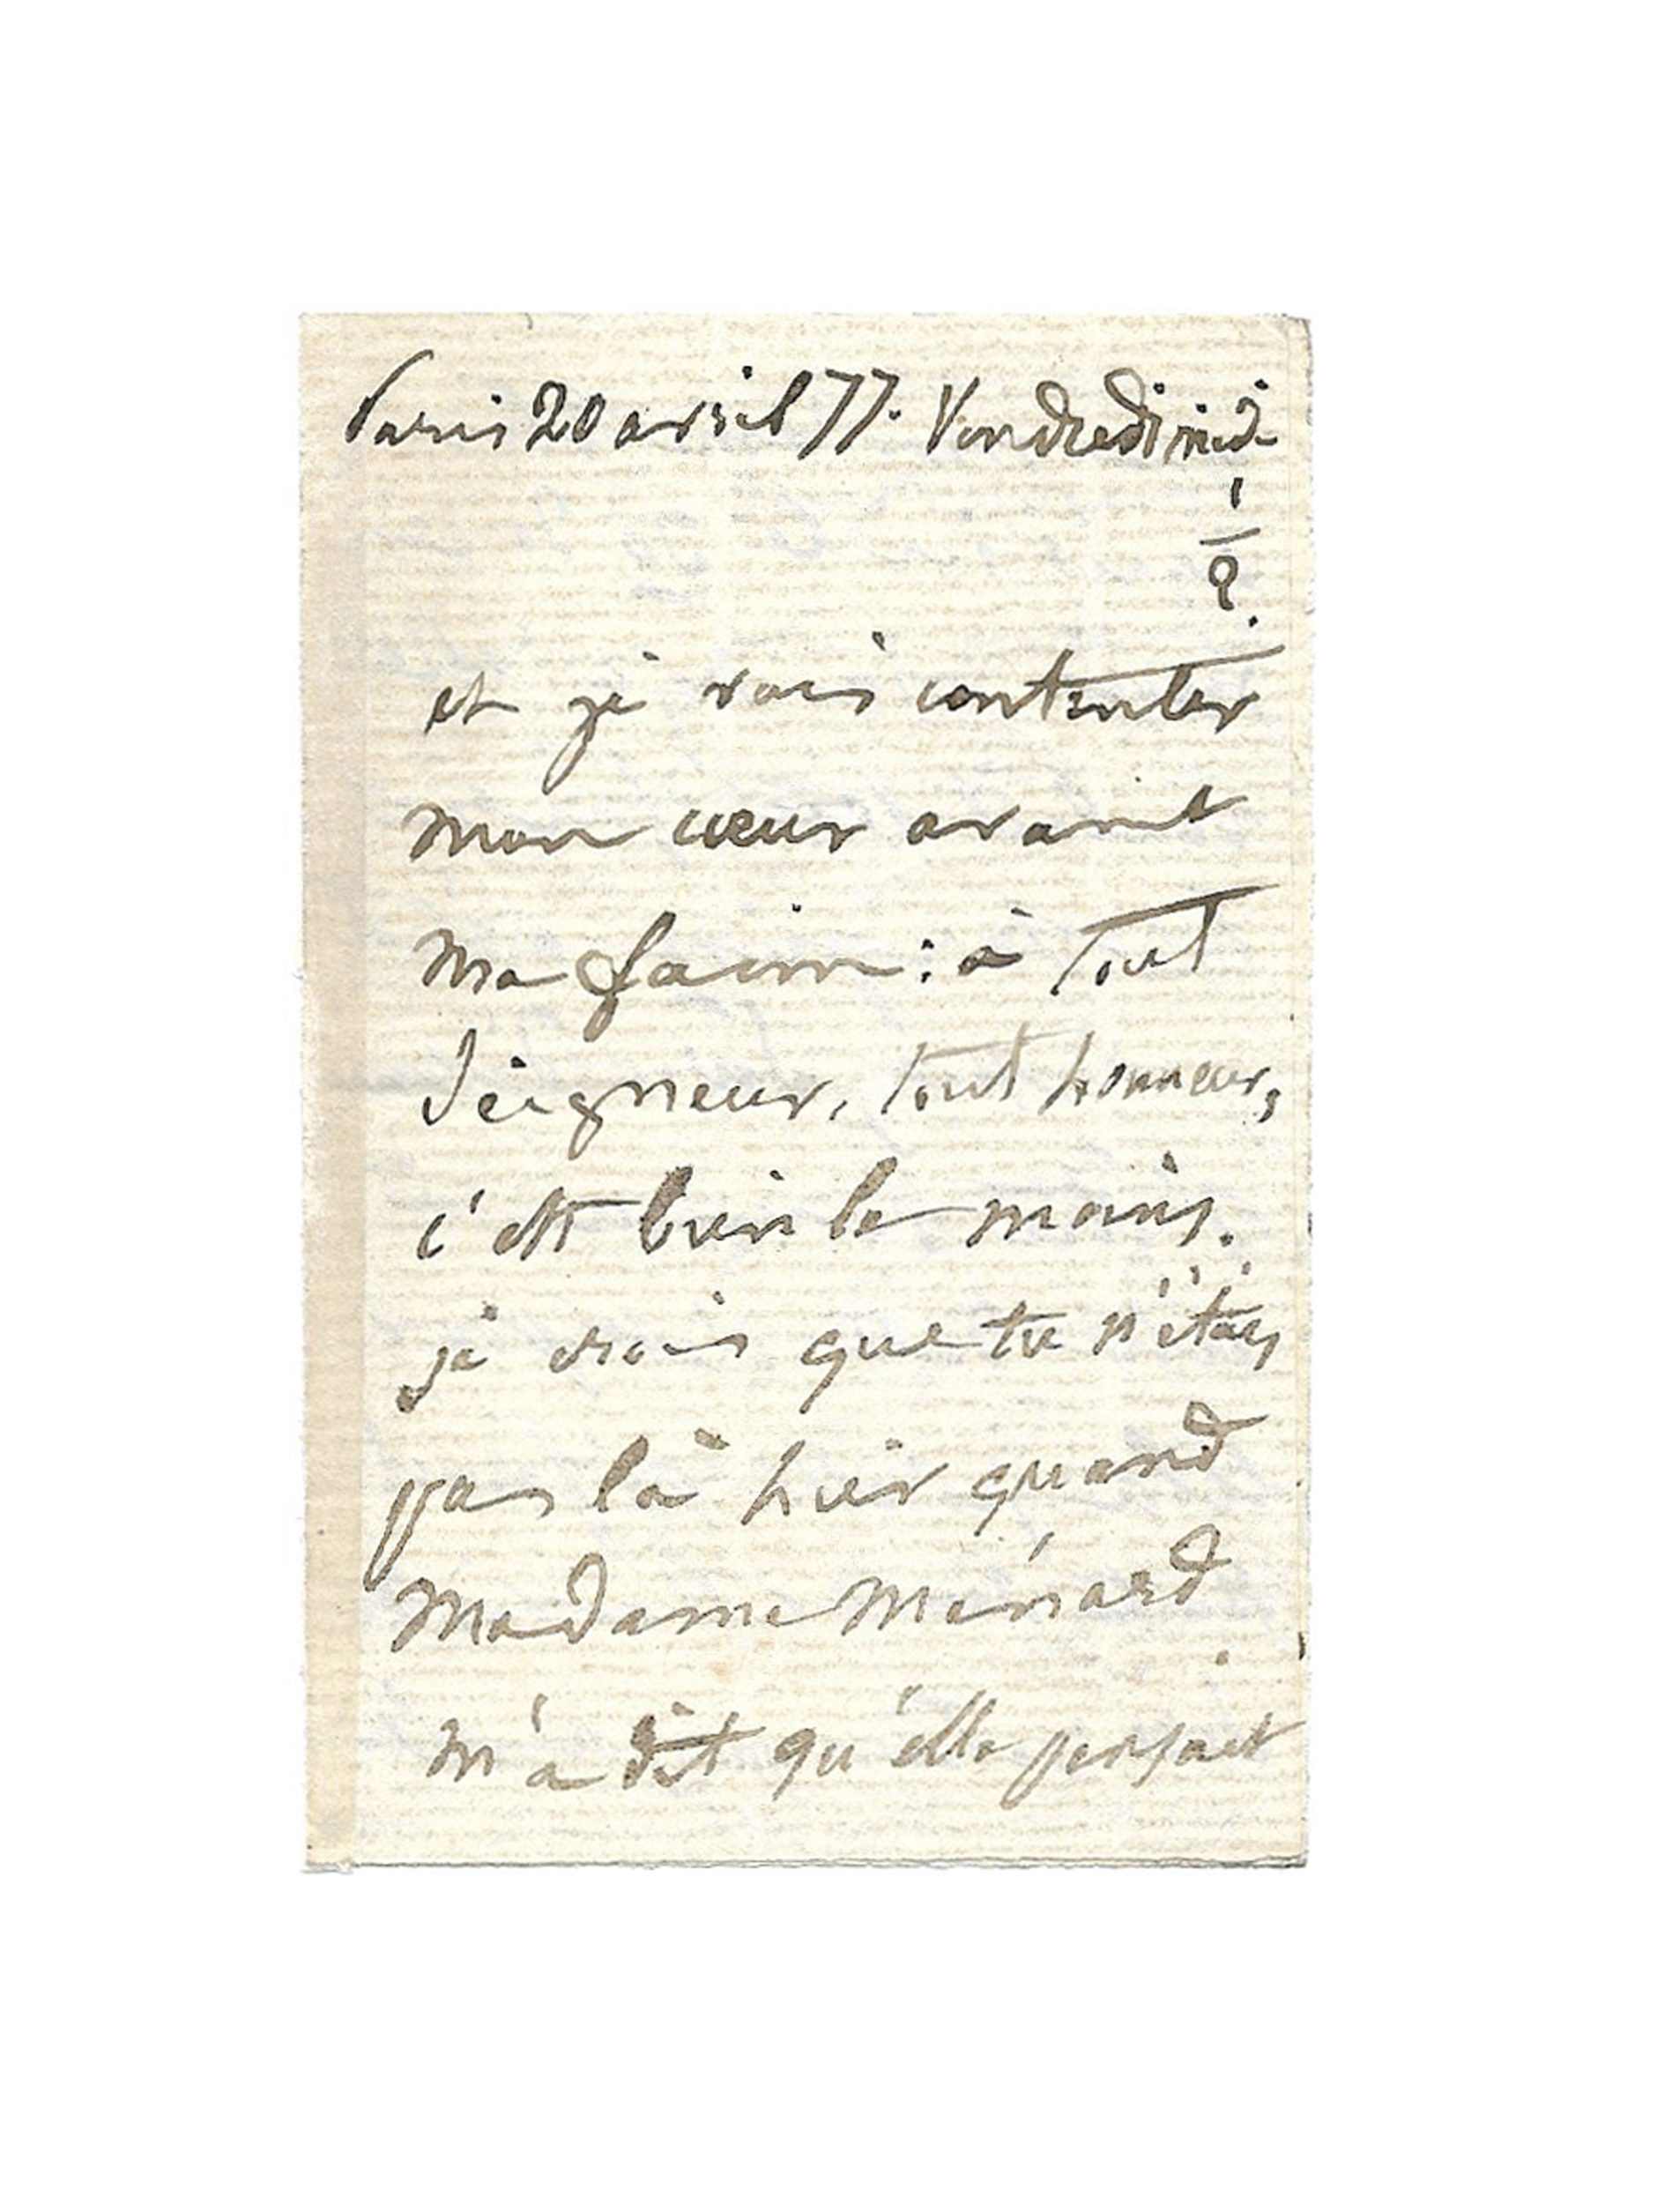 Paris 20 avril 77. Vendredi midi
1/2.
et je vais contenter
mon cœur avant
ma faim : à tout
Seigneur, tout honneur,
c'est bien le moins.
je crois que tu n'étais
pas là hier quand
Madame Ménard
m'a dit qu'elle pensait